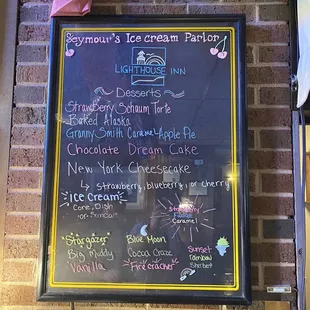 Seymour's Ice cream Parlor
LIGHTHOUSE INN
Desserts
Strawberry Schaum Torte
Baked Alaska
Granny Smith Caramel Apple Pie
Chocolate Dream Cake
New York Cheesecake
↳ strawberry, blueberry, or cherry
Ice Cream
Cone, Dish
or Sundae
Strawberry
Fudge
Caramel
Stargazer
Big Muddy
Vanilla
Blue Moon
Cocoa Craze
Fire cracker
Sunset
rainbow
Sherbet